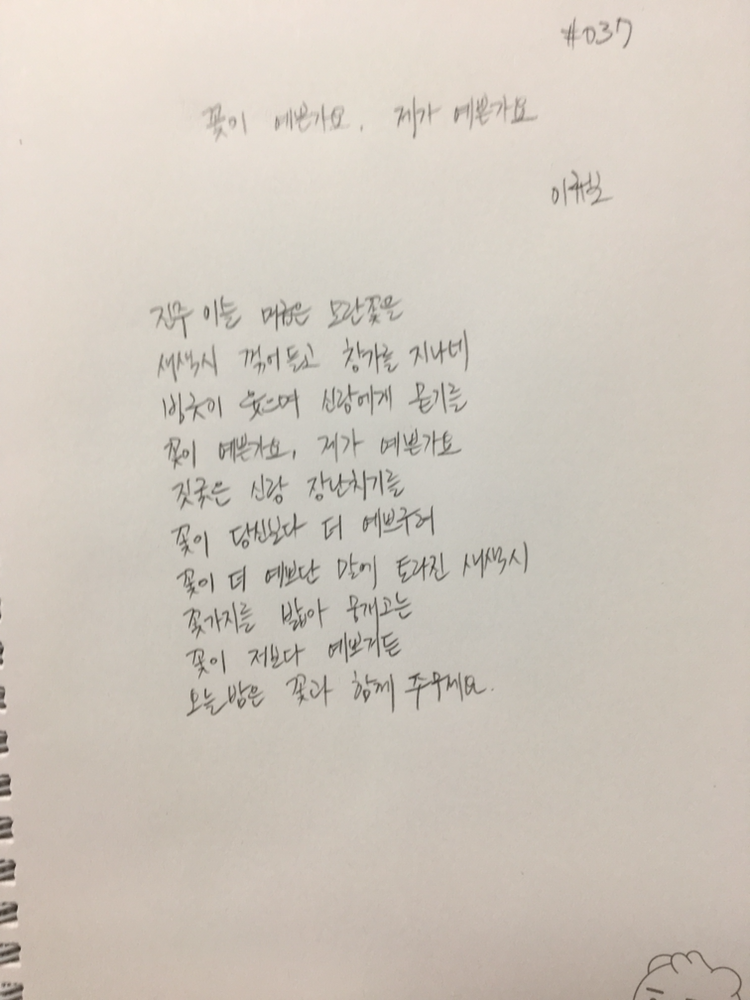 #037
꽃이 예쁜가요, 제가 예쁜가요
이규보
진주 이슬 머금은 모란꽃을
새색시 꺾어들고 창가를 지나네
빙긋이 웃으며 신랑에게 묻기를
꽃이 예쁜가요, 제가 예쁜가요
짓궂은 신랑 장난치기를
꽃이 당신보다 더 예쁘구려
꽃이 더 예쁘단 말에 토라진 새색시
꽃가지를 밟아 뭉개고는
꽃이 저보다 예쁘거든
오늘밤은 꽃과 함께 주무세요.